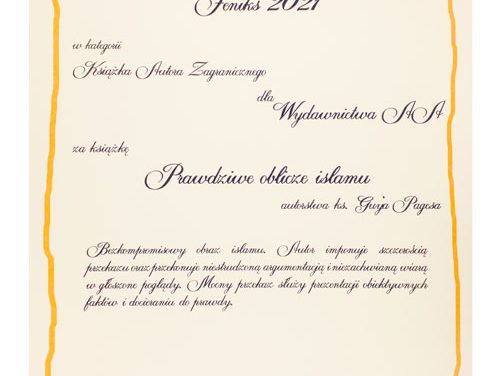 Feniks 2021
w kategorii
Książka Autora Zagranicznego
dla
Wydawnictwa AA
za książkę
Prawdziwe oblicze islamu
autorstwa ks. Guya Pagesa
Bezkompromisowy obraz islamu. Autor imponuje szczerością
przekazu oraz przekonuje niestrudzoną argumentacją i niezachwianą wiarą
w głoszone poglądy. Mocny przekaz służy prezentacji obiektywnych
faktów i docieraniu do prawdy.